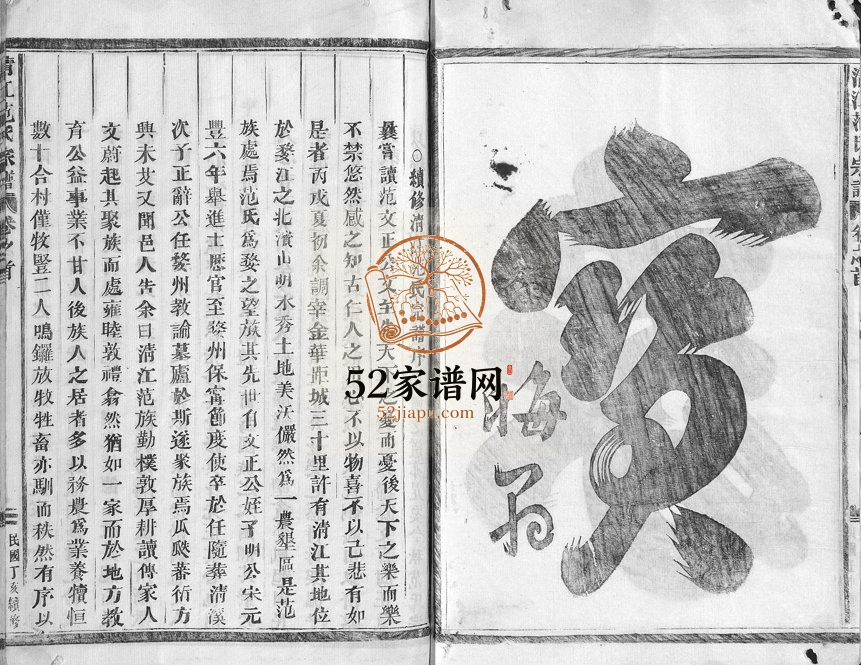 寳
晦翁
清江范氏宗譜 卷之首
○續修清江范氏宗譜序
嘗讀范文正公文至先天下之憂而憂後天下之樂而樂
不禁悠然感之知古仁人之心不以物喜不以己悲有如
是者丙戌夏初余調宰金華距城三十里許有清江其地位
於婺江之北濱山明水秀土地美沃儼然爲一農墾區是范
族處焉范氏爲婺之望族其先世自文正公姪子明公宋元
豐六年舉進士歷官至婺州保寧節度使卒於任隨葬清溪
次子正辭公任婺州教諭墓廬於斯遂聚族焉瓜瓞蕃衍方
興未艾又聞邑人告余曰清江范族勤樸敦厚耕讀傳家人
文蔚起其聚族而處雍睦敦禮翕然猶如一家而於地方教
育公益事業不甘人後族人之居者多以務農爲業養犢恒
數十合村僅牧豎二人鳴鑼放牧牲畜亦馴而秩然有序以
清江范氏宗譜 卷之首
民國丁亥續修
52家谱网
52jiapu.com